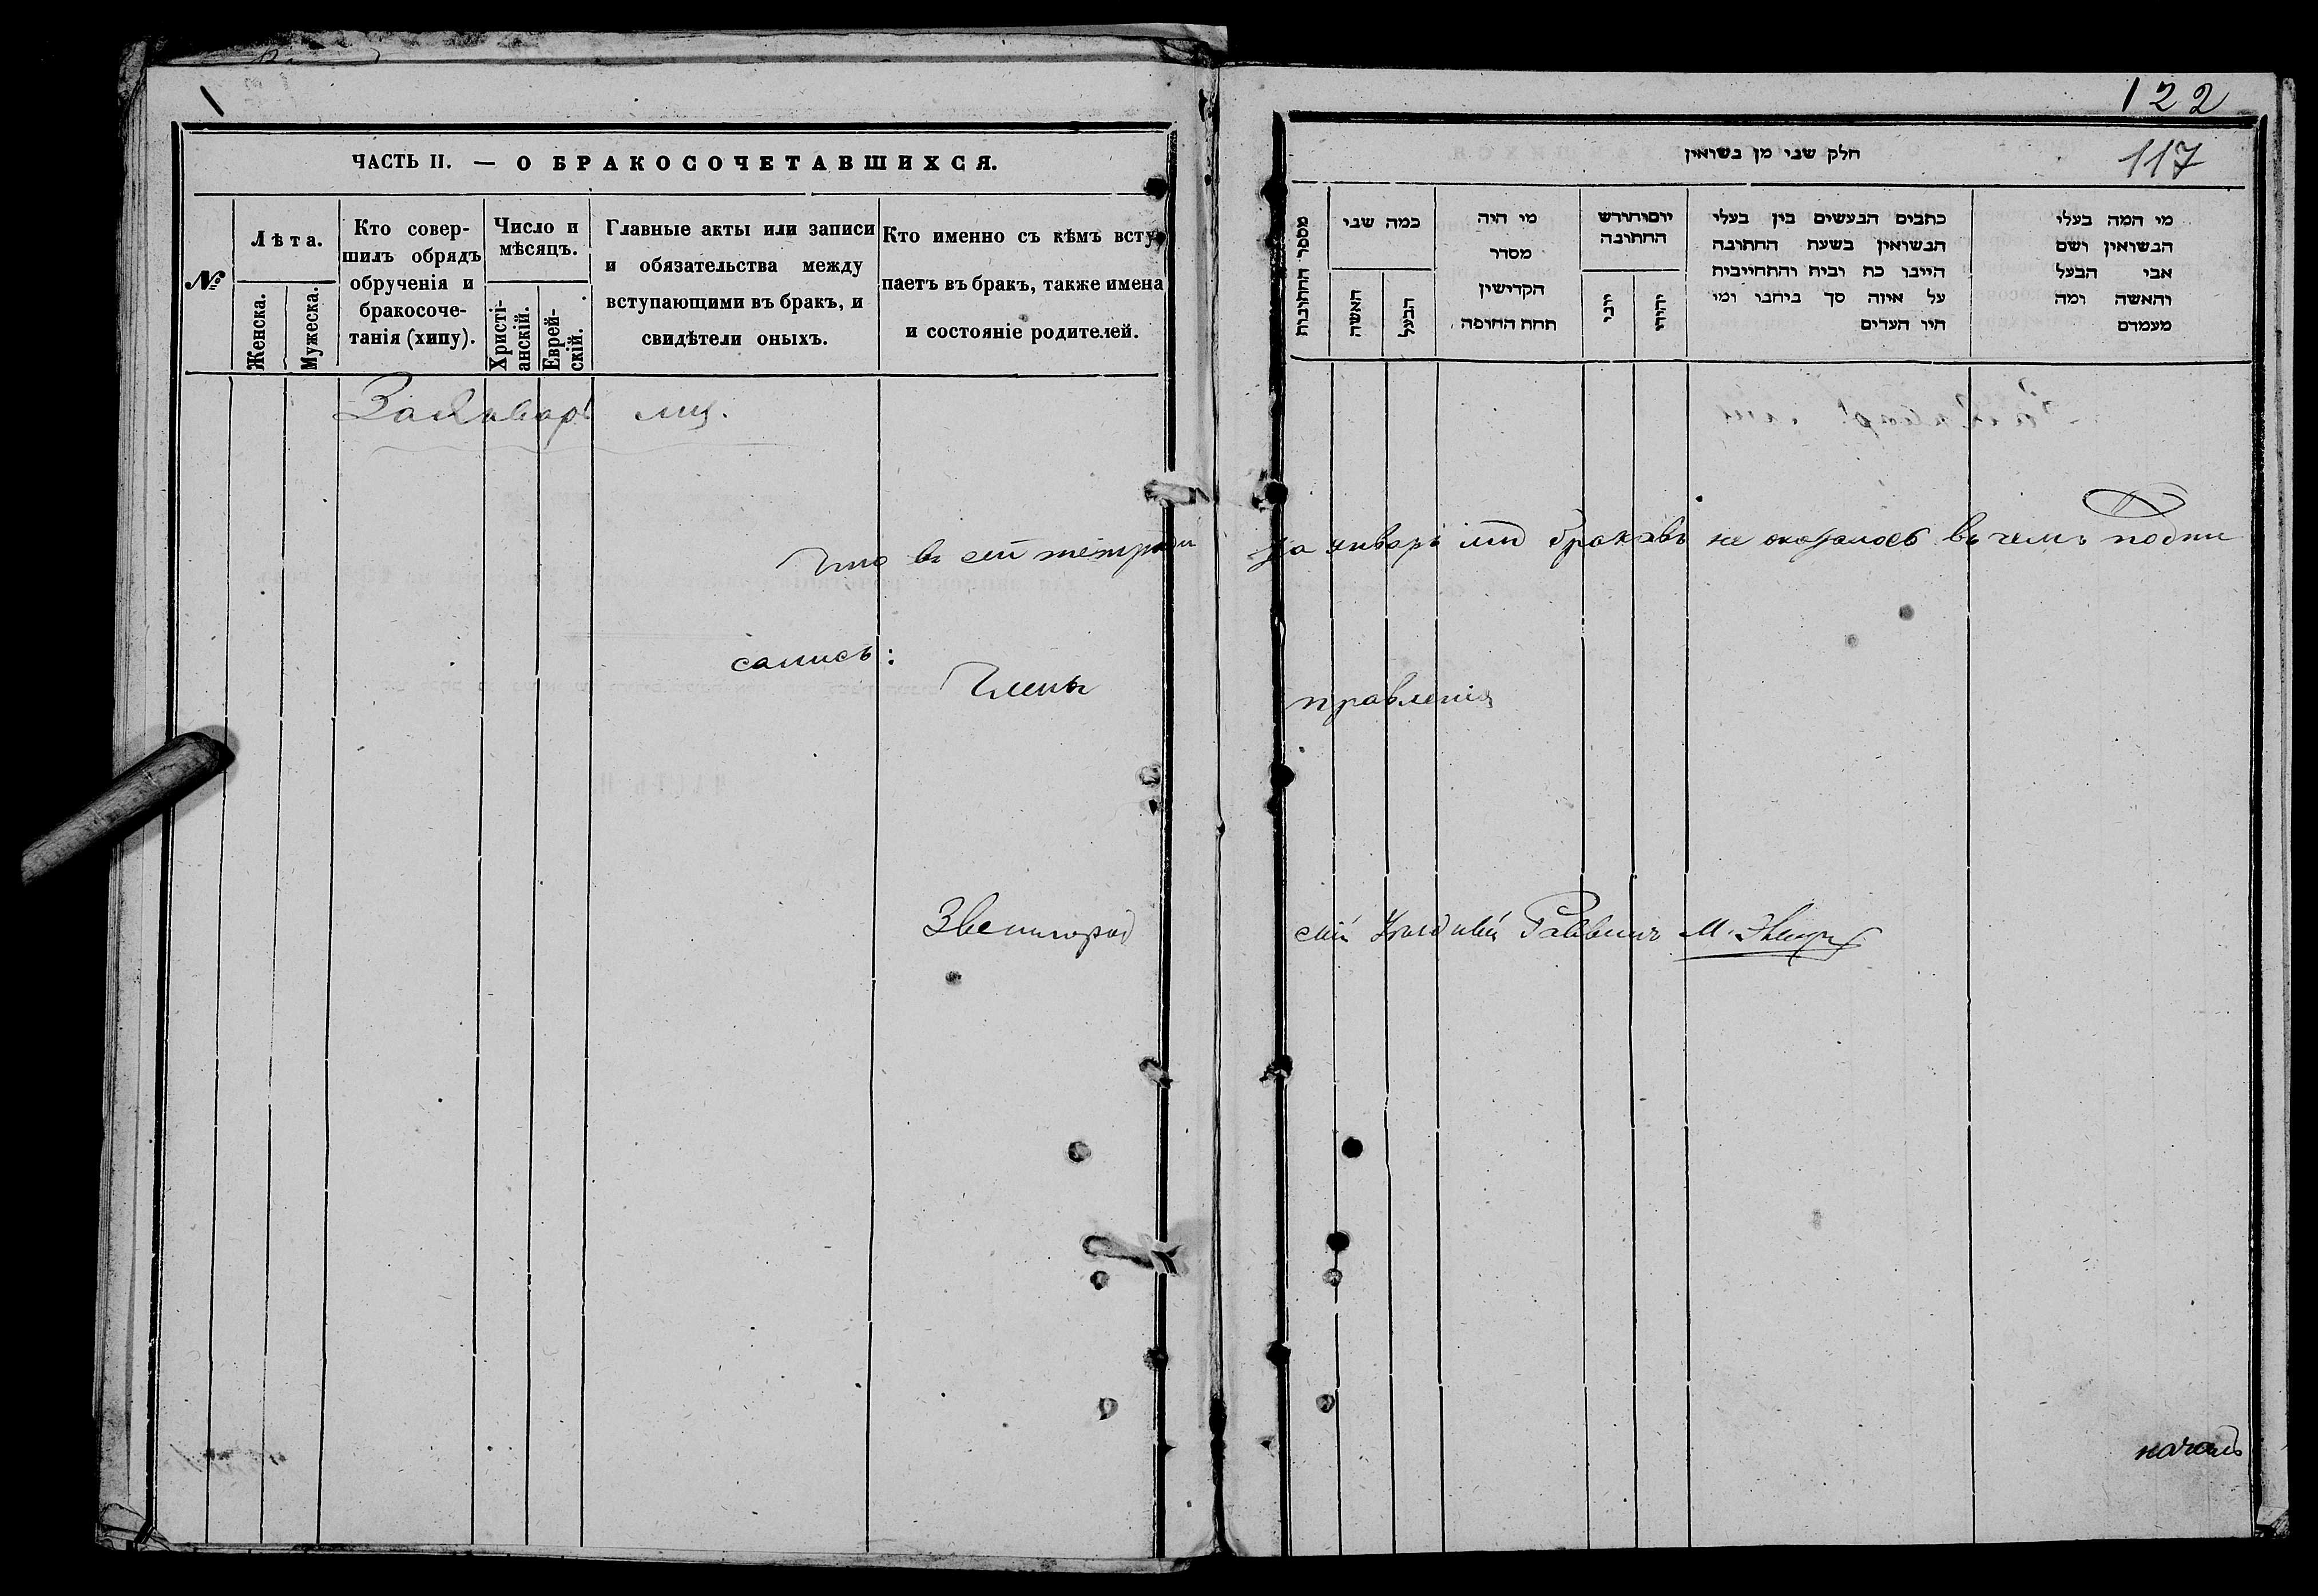 1
ЧАСТЬ II. — О БРАКОСОЧЕТАВШИХСЯ.
№
Лѣта.
Женска.
Мужеска.
Кто совер-
шилъ обрядъ
обрученія и
бракосоче-
танія (хипу).
Число и
мѣсяцъ.
Христі-
анскій.
Еврей-
скій.
Главные акты или записи
и обязательства между
вступающими въ бракъ, и
свидѣтели оныхъ.
Кто именно съ кѣмъ всту
паетъ въ бракъ, также имена
и состояніе родителей.
122
117
חלק שני מן נשואין
מספר החתונות
כמה שני
האשה
הבעל
מי היה
מסדר
הקדישין
תחת החופה
יום וחודש
החתונה
יוני
יהודי
כתבים הנעשים בין בעלי
הנשואין בשעת החתונה
היינו כת וביח והתחייבית
על איזה סך ביתבו ומי
היו העדים
מי המה בעלי
הנשואין ושם
אבי הבעל
והאשה ומה
מעמדם
За Январь мц.
Что въ сей тетради за январь мц браковъ не оказалось въ чемъ подпи
сались:
Члены правленія
Звенигород скій Уездный Раввинъ М.
начать